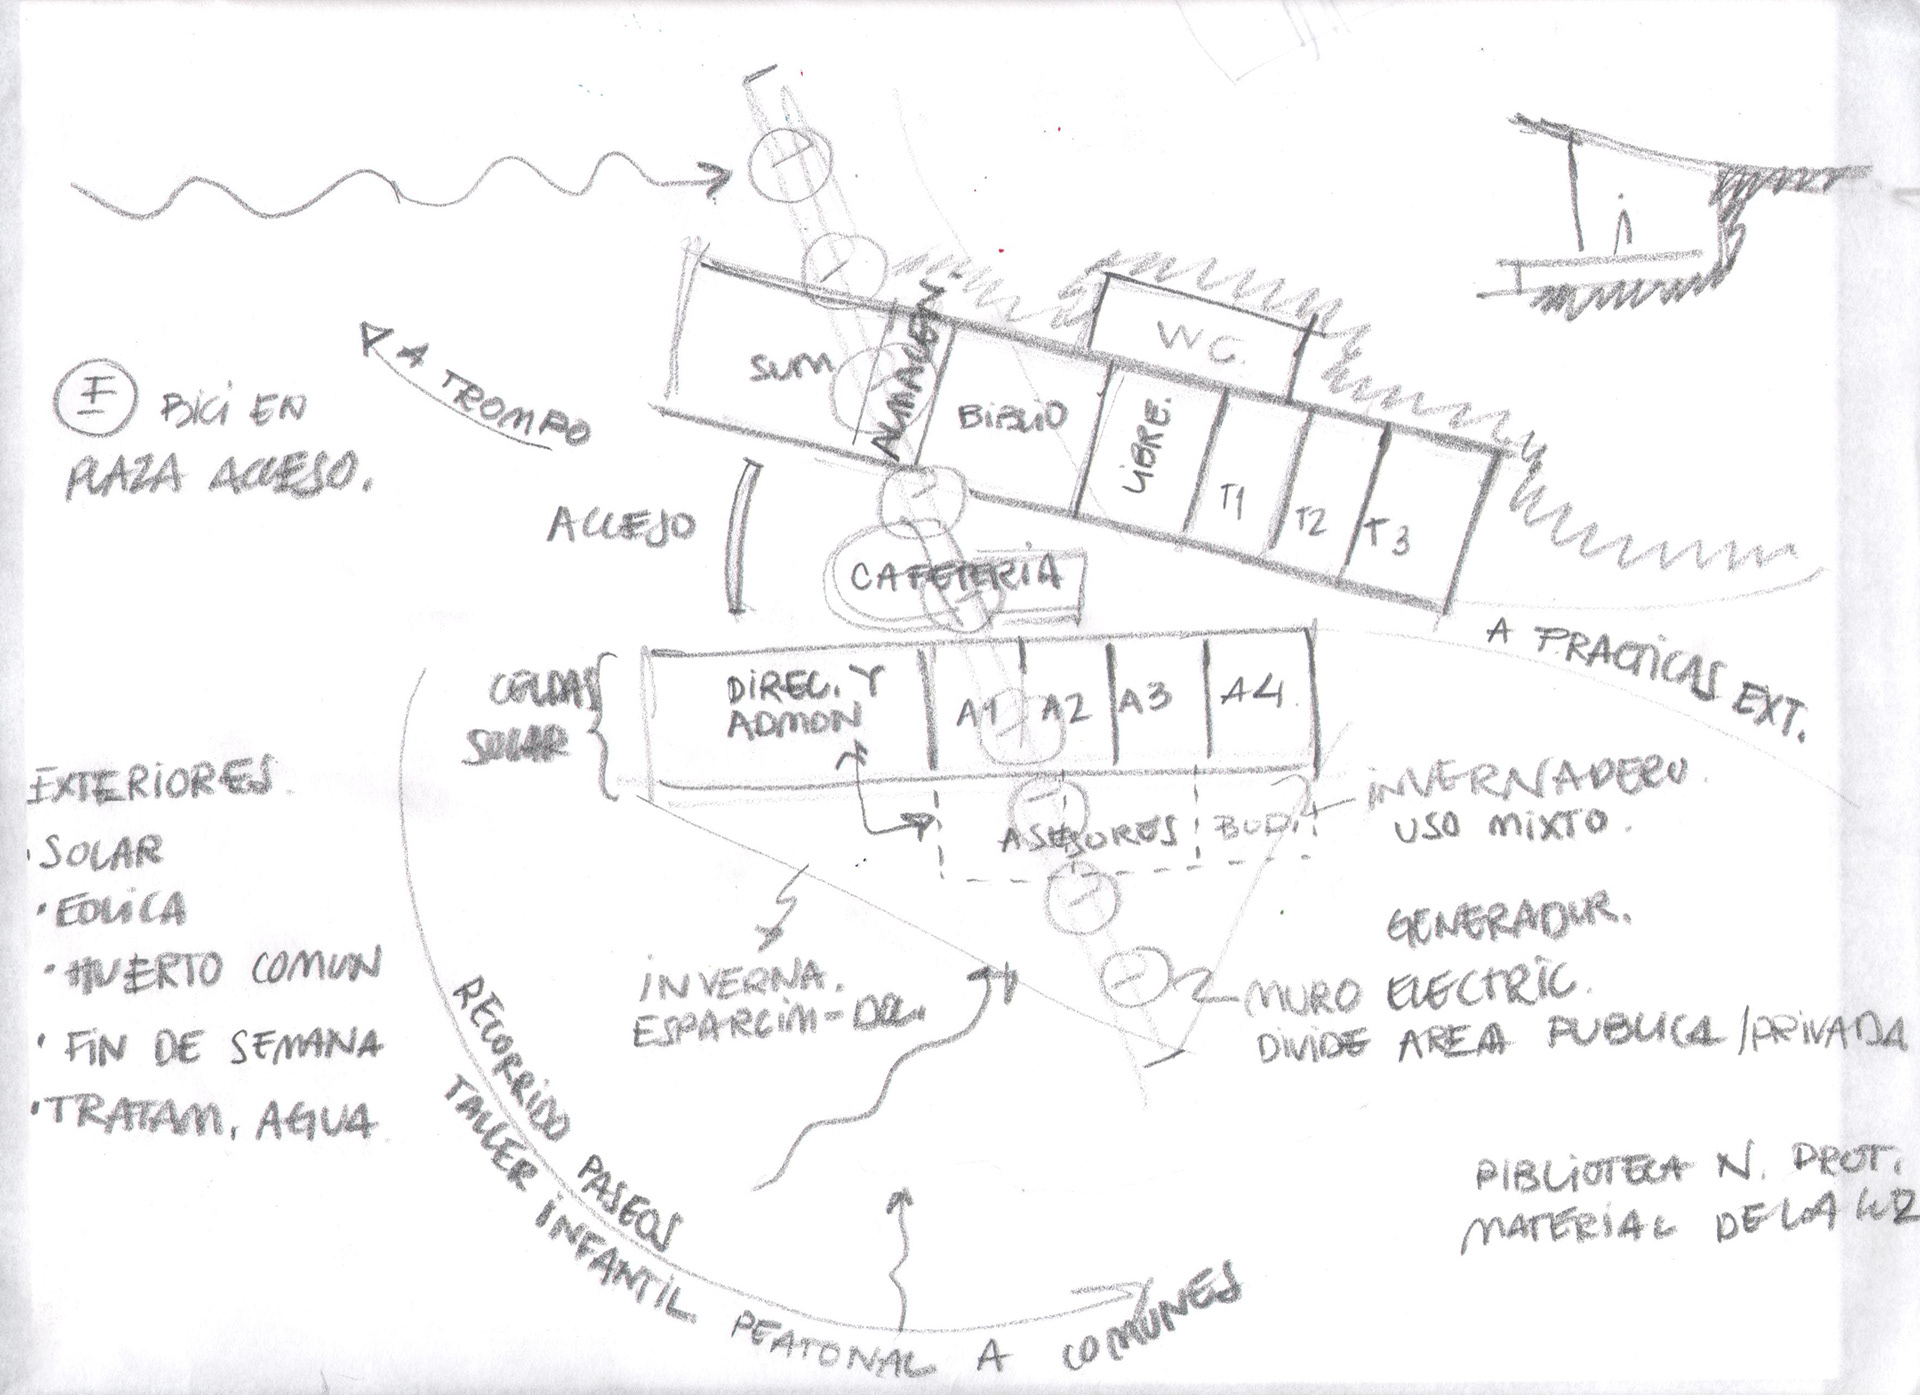 A TROMPO
I BICI EN
PLAZA ACCESO.
ACCESO
SUM
ALMACEN Y
BIBLIO
WC.
LIBRE.
T1
T2
T3
CAFETERIA
A PRACTICAS EXT.
CELDAS
SOLAR
DIREC. Y
ADMON
A1
A2
A3
A4
ASESORES
INVERNADERO
USO MIXTO.
EXTERIORES
·SOLAR
·EOLICA
·HUERTO COMUN
·FIN DE SEMANA
·TRATAM. AGUA
INVERNA.
GENERADOR.
MURO ELECTRIC.
DIVIDE AREA PUBLICA/PRIVADA
RECORRIDO PASEOS
TALLER INFANTIL PEATONAL A COMUNES
BIBLIOTECA N. PROT.
MATERIAL DE LA LUZ